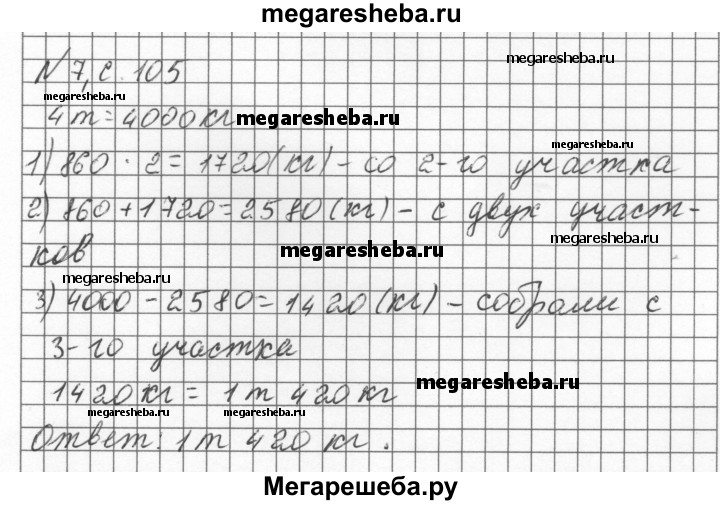 megaresheba.ru
№7, с. 105
megaresheba.ru
megaresheba.ru
4т = 4000кг megaresheba.ru
1) 860 · 2 = 1720(кг) - со 2-го участка
2) 860 + 1720 = 2580 (кг) - с двух участ-
megaresheba.ru
ков megaresheba.ru
megaresheba.ru
3) 4000 - 2580 = 1420 (кг) - собрали с
3-го участка
1420 кг = 1т 420 кг megaresheba.ru
megaresheba.ru megaresheba.ru
Ответ: 1т 420 кг.
Мегарешеба.ру